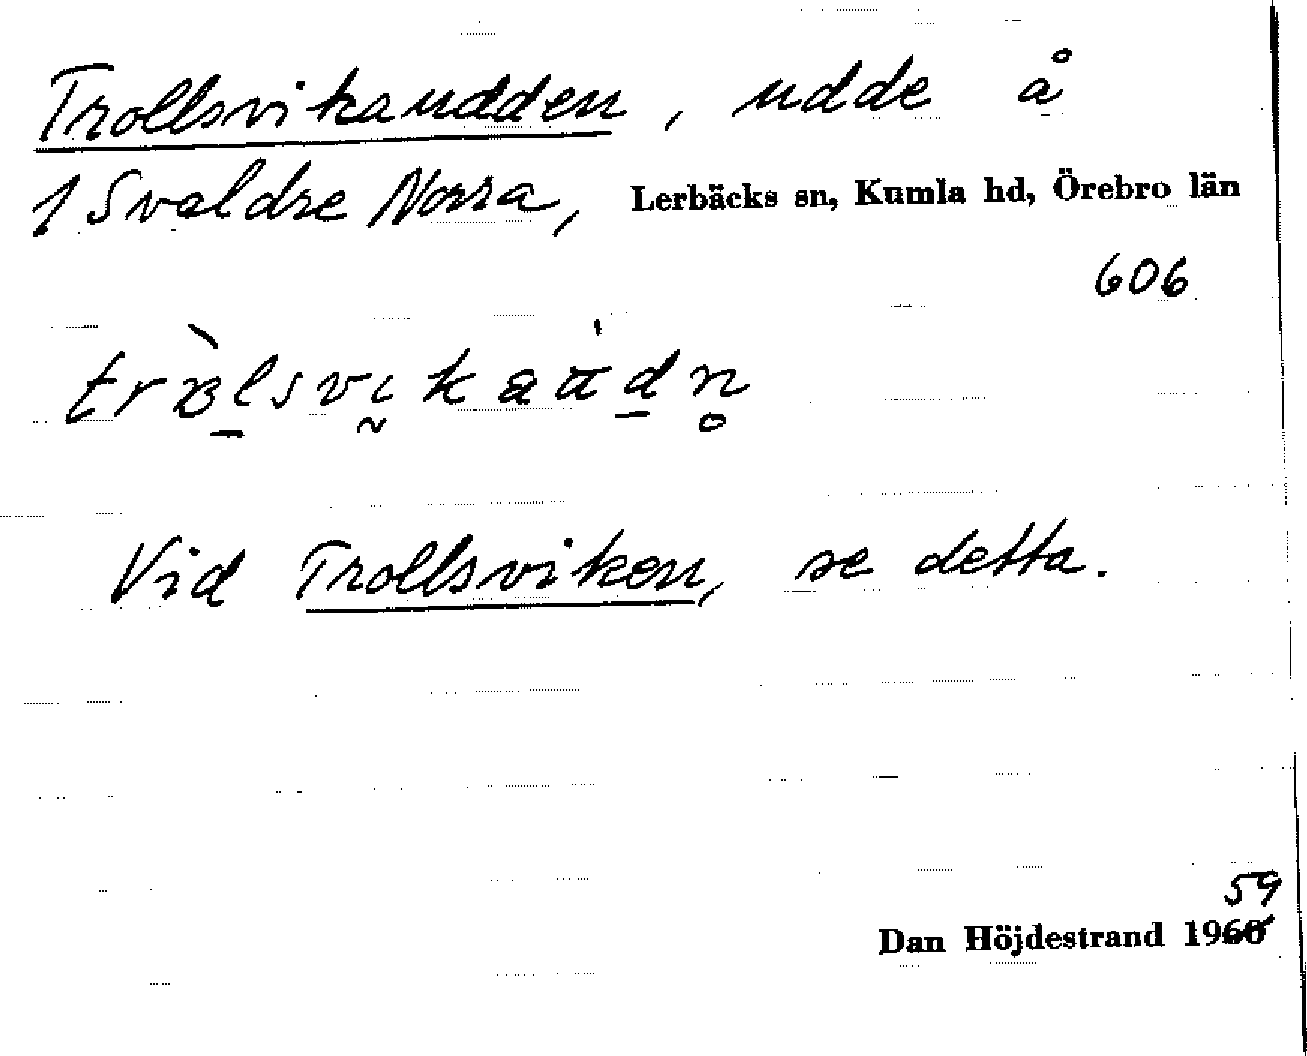 Trollsvikaudden, udde å
1 Svaldre Norra, Lerbäcks sn, Kumla hd, Örebro län
606
Vid Trollsviken, se detta.
59
Dan Höjdestrand 1960